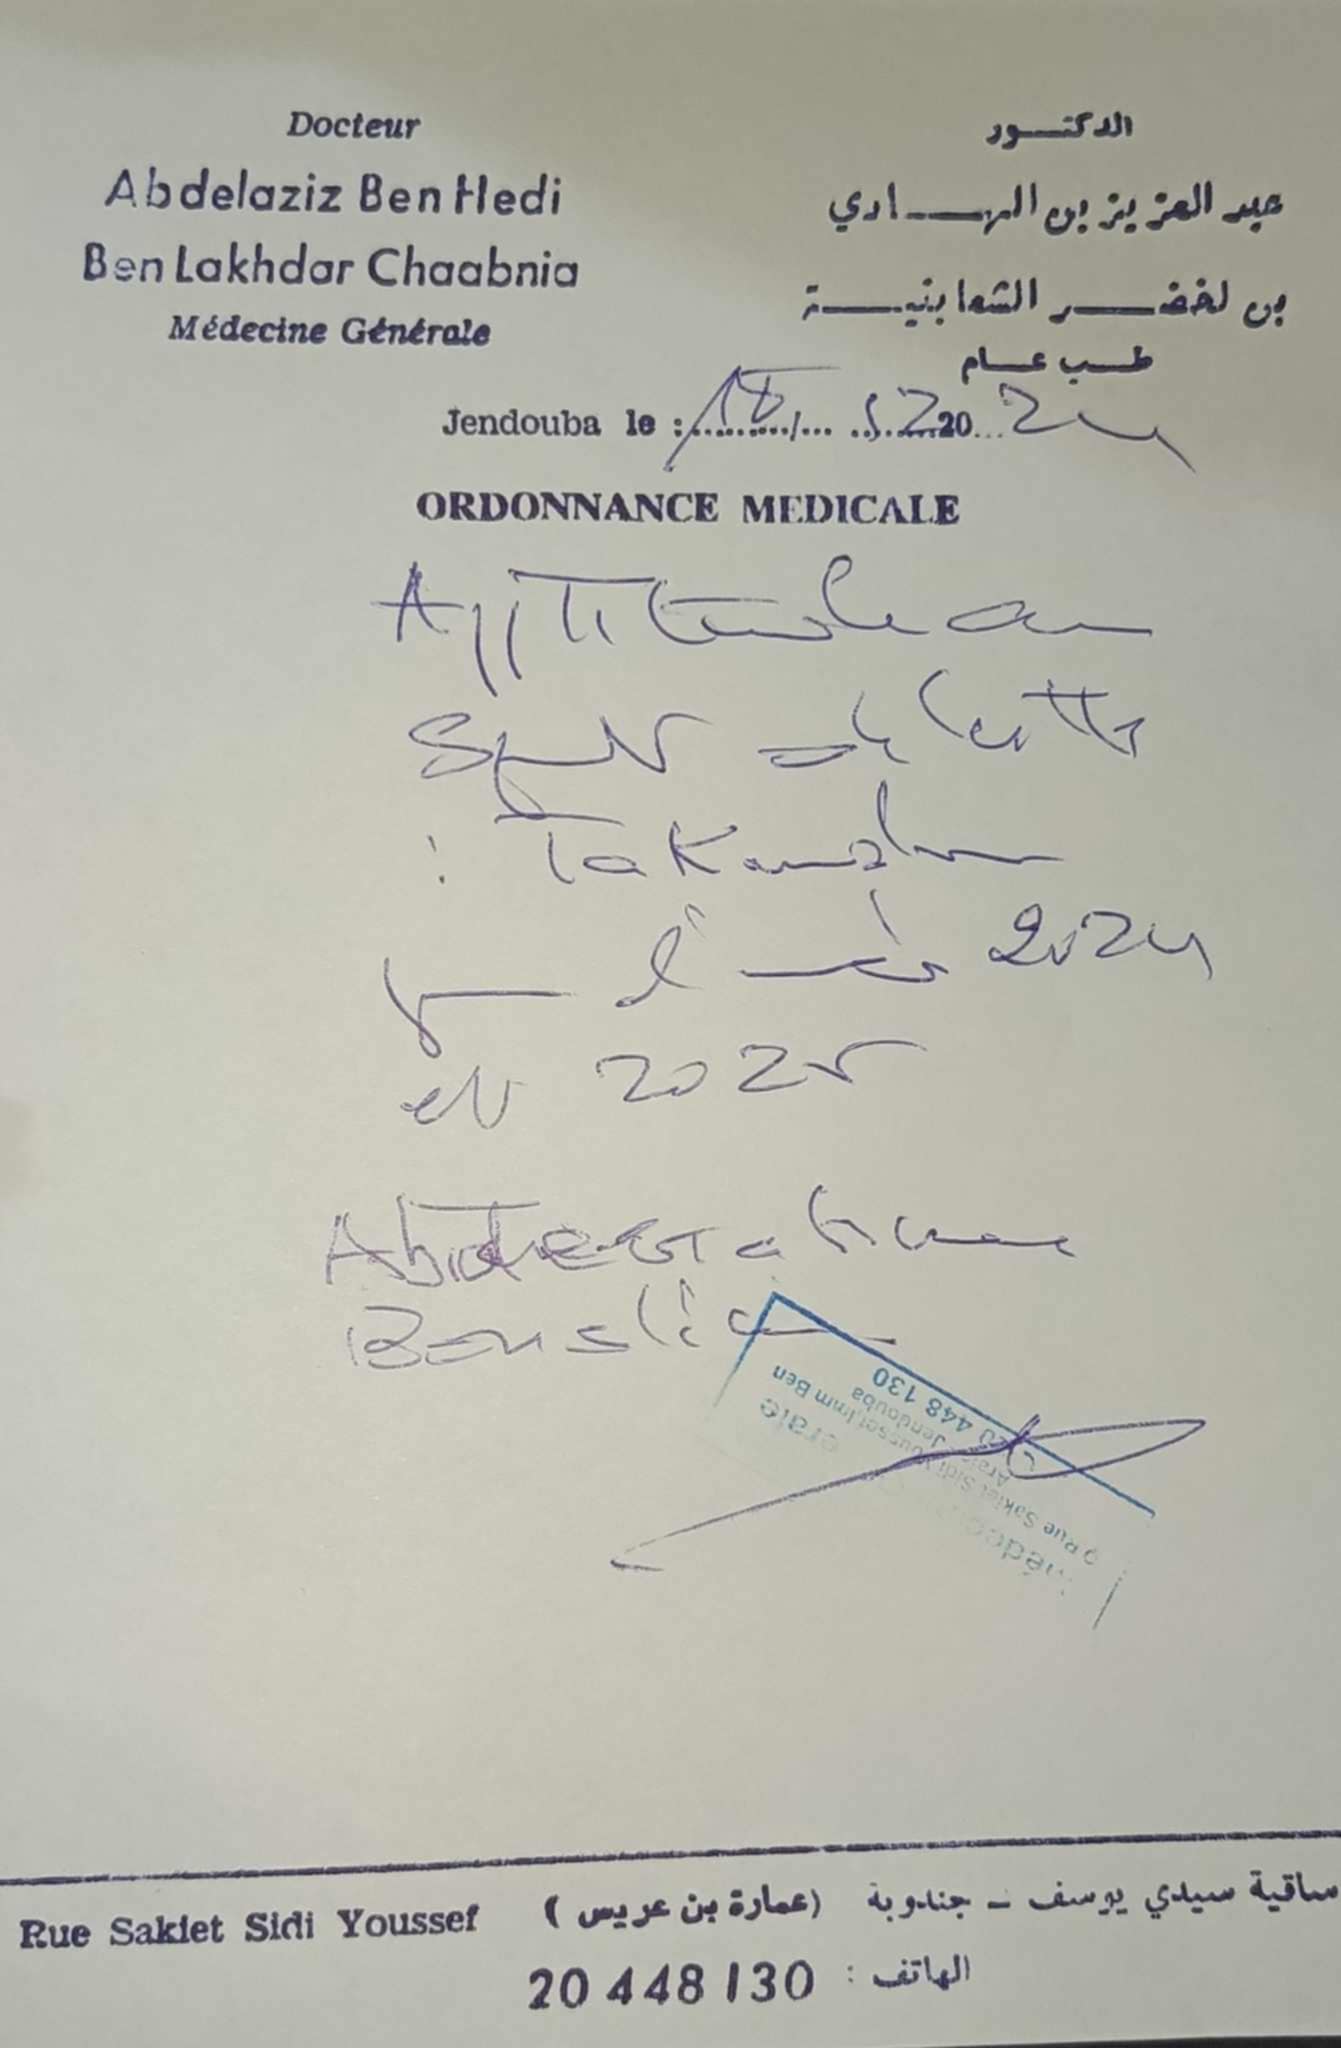 Docteur
Abdelaziz Ben Hedi
Ben Lakhdar Chaabnia
Médecine Générale
الدكتور
عبد العزيز بن الهادي
بن لخضر الشعابنية
طب عام
Jendouba le : 18/ 12 2024
ORDONNANCE MEDICALE
Aptitude au
Sport de lutte
: Takwendo
l'année 2024
et 2025
médecine générale
9 Rue Sakiet Sidi Youssef, Imm Ben
Jendouba
20 448 130
Rue Sakiet Sidi Youssef
ساقية سيدي يوسف - جندوبة (عمارة بن عريس)
الهاتف : 20 448 130